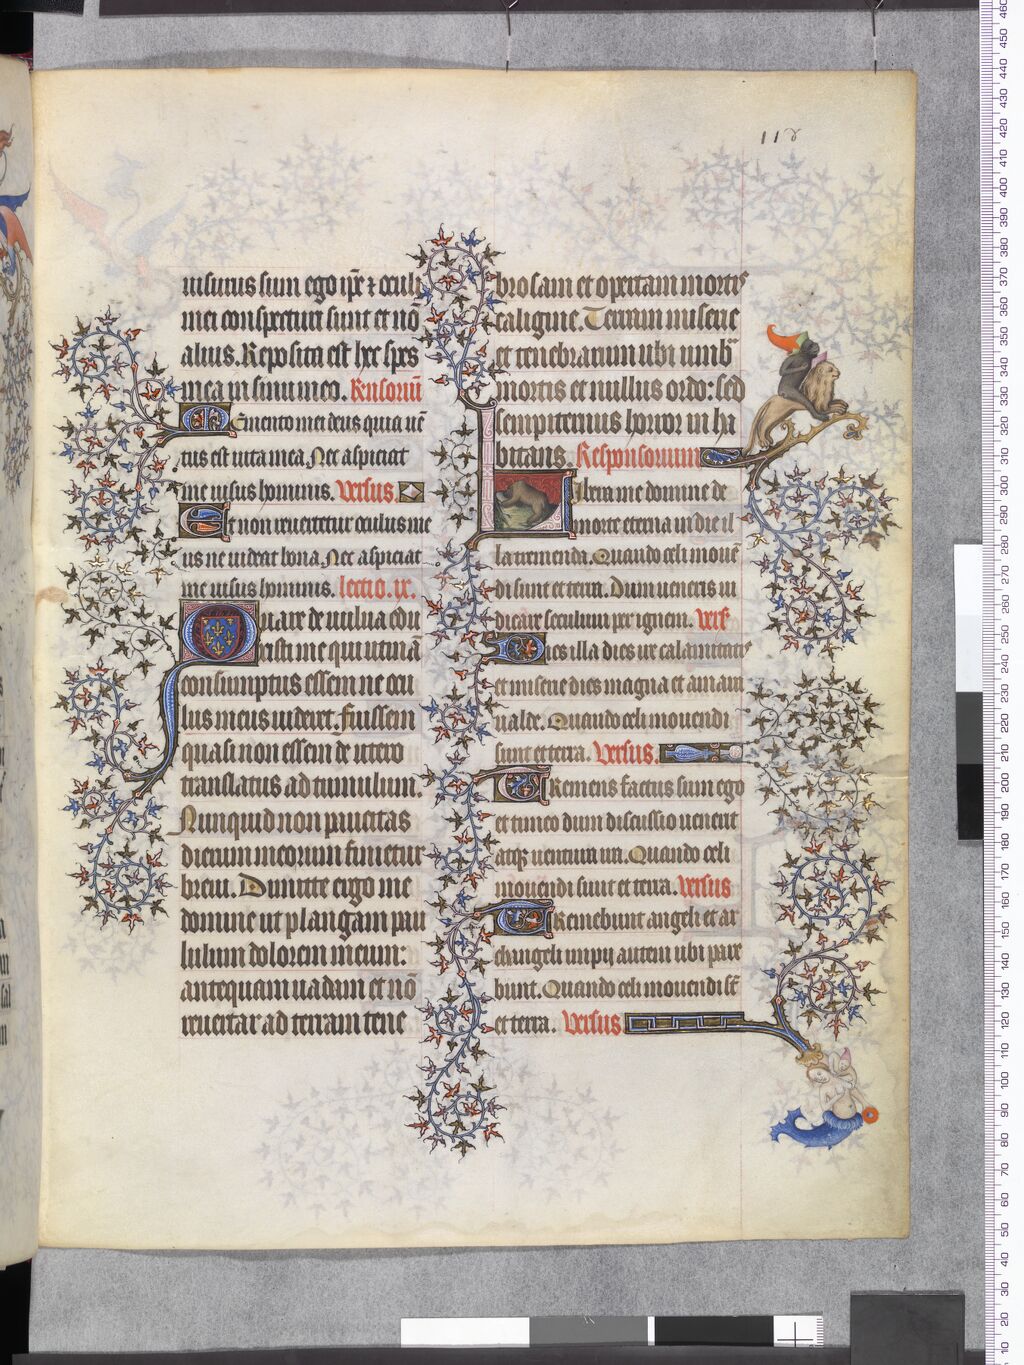 118
uisurus sum ego ip̄e ⁊ oculi
mei conspecturi sunt et nō
alius. Reposita est hec spes
mea in sinu meo. Rn̄sorium
Emento mei deus quia uē
tus est uita mea. Nec aspiciat
me uisus hominis. Versus.
Et non reuertetur oculus me
us ut uideat bona. Nec aspiciat
me uisus hominis. lectio .ix.
Quare de uulua edu
xisti me qui utinā
consumptus essem ne ocu
lus meus uideret. fuissem
quasi non essem de utero
translatus ad tumulum.
Nunquid non paucitas
dierum meorum finietur
breui. Dimitte ergo me
domine ut plangam pau
lulum dolorem meum:
antequam uadam et nō
reuertar ad terram tene
brosam et opertam mortis
caligine. Terram miserie
et tenebrarum ubi umb
mortis et nullus ordo: sed
sempiternus horror in ha
bitans. Responsorium
Libera me domine de
morte eterna in die il
la tremenda. Quando celi mouē
di sunt et terra. Dum ueneris iu
dicare seculum per ignem. Vers
Dies illa dies ire calamitatis
et miserie dies magna et amara
ualde. Quando celi mouendi
sunt et terra. Versus.
Tremens factus sum ego
et timeo dum discussio uenerit
atq̄ uentura ira. Quando celi
mouendi sunt et terra. Versus
Tremebunt angeli et ar
changeli impii autem ubi pare
bunt. Quando celi mouendi st̄
et terra. Versus